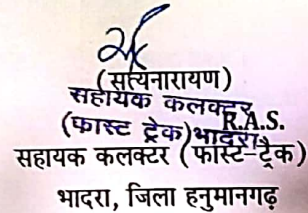 (सत्यनारायण)
सहायक कलक्टर
R.A.S.
(फास्ट ट्रेक) भादरा
सहायक कलक्टर (फास्ट-ट्रैक)
भादरा, जिला हनुमानगढ़